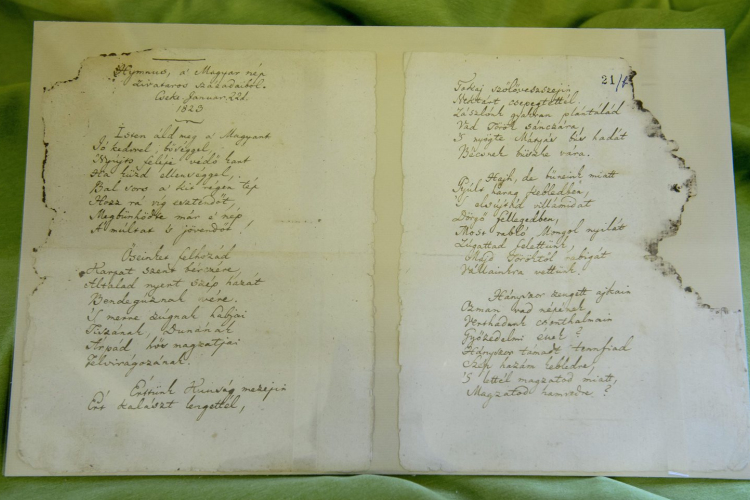 Hymnus, a' Magyar nép
zivataros századaiból.
Cseke Januar. 22d.
1823
Isten áldd meg a' Magyart
Jó kedvvel, bőséggel,
Nyújts feléje védő kart
Ha küzd ellenséggel;
Bal sors a' kit régen tép
Hozz rá víg esztendőt,
Megbűnhődte már e' nép
A' múltat 's jövendőt!
Őseinket felhozád
Kárpát szent bérczére,
Általad nyert szép hazát
Bendegúznak vére.
'S merre zúgnak habjai
Tiszának, Dunának
Árpád hős magzatjai
Felvirágozának.
Értünk Kunság mezejin
Ért kalászt lengettél,
21/
Tokaj szőlővesszejin
Nektárt csepegtettél.
Zászlónk gyakran plántálád
Vad Török sánczára,
'S nyögte Mátyás bús hadát
Bécsnek büszke vára.
Hajh, de bűneink miatt
Gyúlt harag kebledben,
'S elsújtád villámidat
Dörgő fellegedben,
Most rabló Mongol nyilát
Zúgattad felettünk,
Majd Töröktől rabigát
Vállainkra vettünk.
Hányszor zengett ajkain
Ozman vad népének
Vert hadunk csonthalmain
Győzedelmi ének?
Hányszor támadt tennfiad
Szép hazám kebledre,
'S lettél magzatod miatt,
Magzatod hamvvedre?